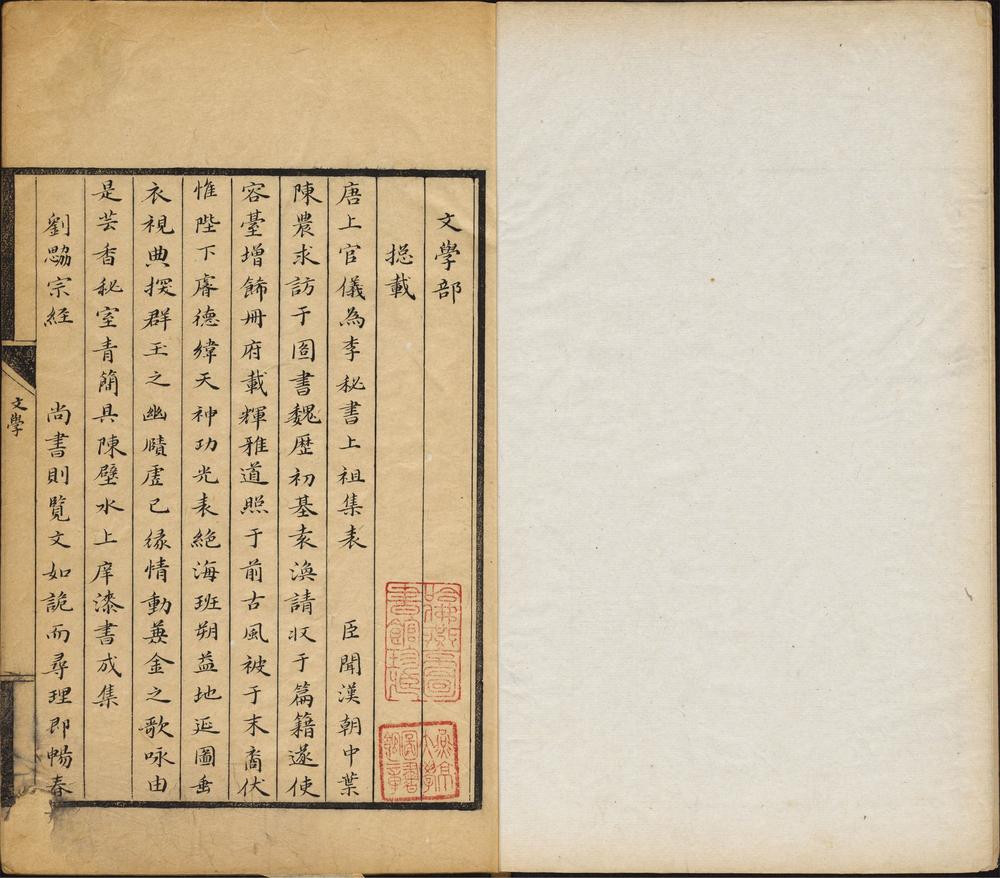 文學部
揔載
唐上官儀為李秘書上祖集表　臣聞漢朝中葉
陳農求訪于圖書魏歷初基袁渙請收于篇籍遂使
容臺增飾冊府載輝雅道照于前古風被于末裔伏
惟陛下膺德緯天神功光表絕海班朔益地延圖垂
衣視典探群玉之幽賾虛己緣情動蓺金之歌咏由
是芸香秘室青簡具陳壁水上庠漆書成集
劉勰宗經　尚書則覽文如詭而尋理即暢春
文學
哈佛燕京圖書館珍藏
燕京大學圖書館章